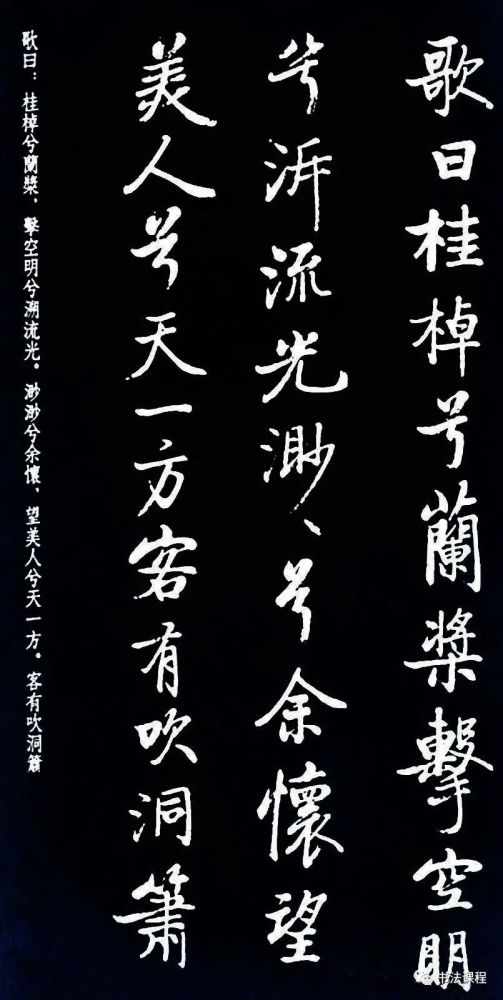 歌曰桂棹兮蘭槳擊空明
兮泝流光渺〻兮余懷望
美人兮天一方客有吹洞簫
歌曰：桂棹兮蘭槳，擊空明兮溯流光。渺渺兮余懷，望美人兮天一方。客有吹洞簫
书法课程